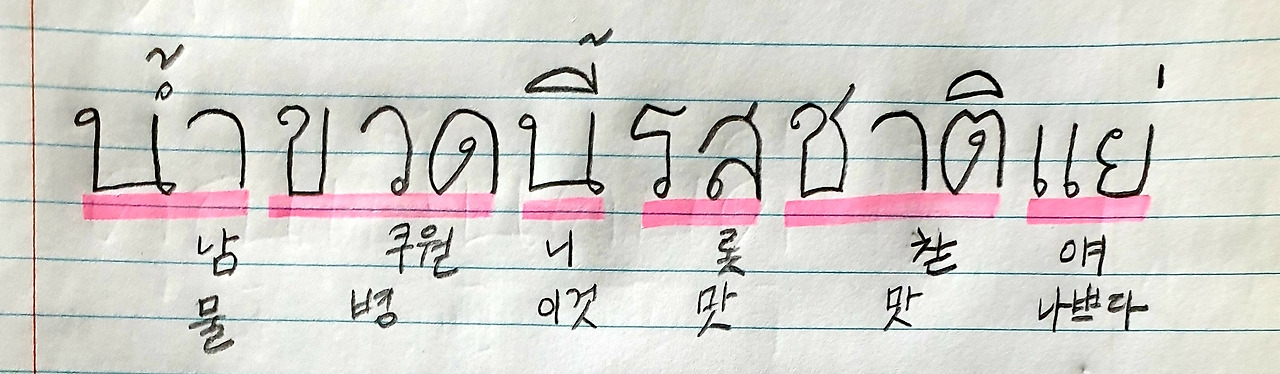 น้ำ ขวด นี้ รส ชาติ แย่
남 쿠웓 니 롯 찯 얘
물 병 이것 맛 맛 나쁘다